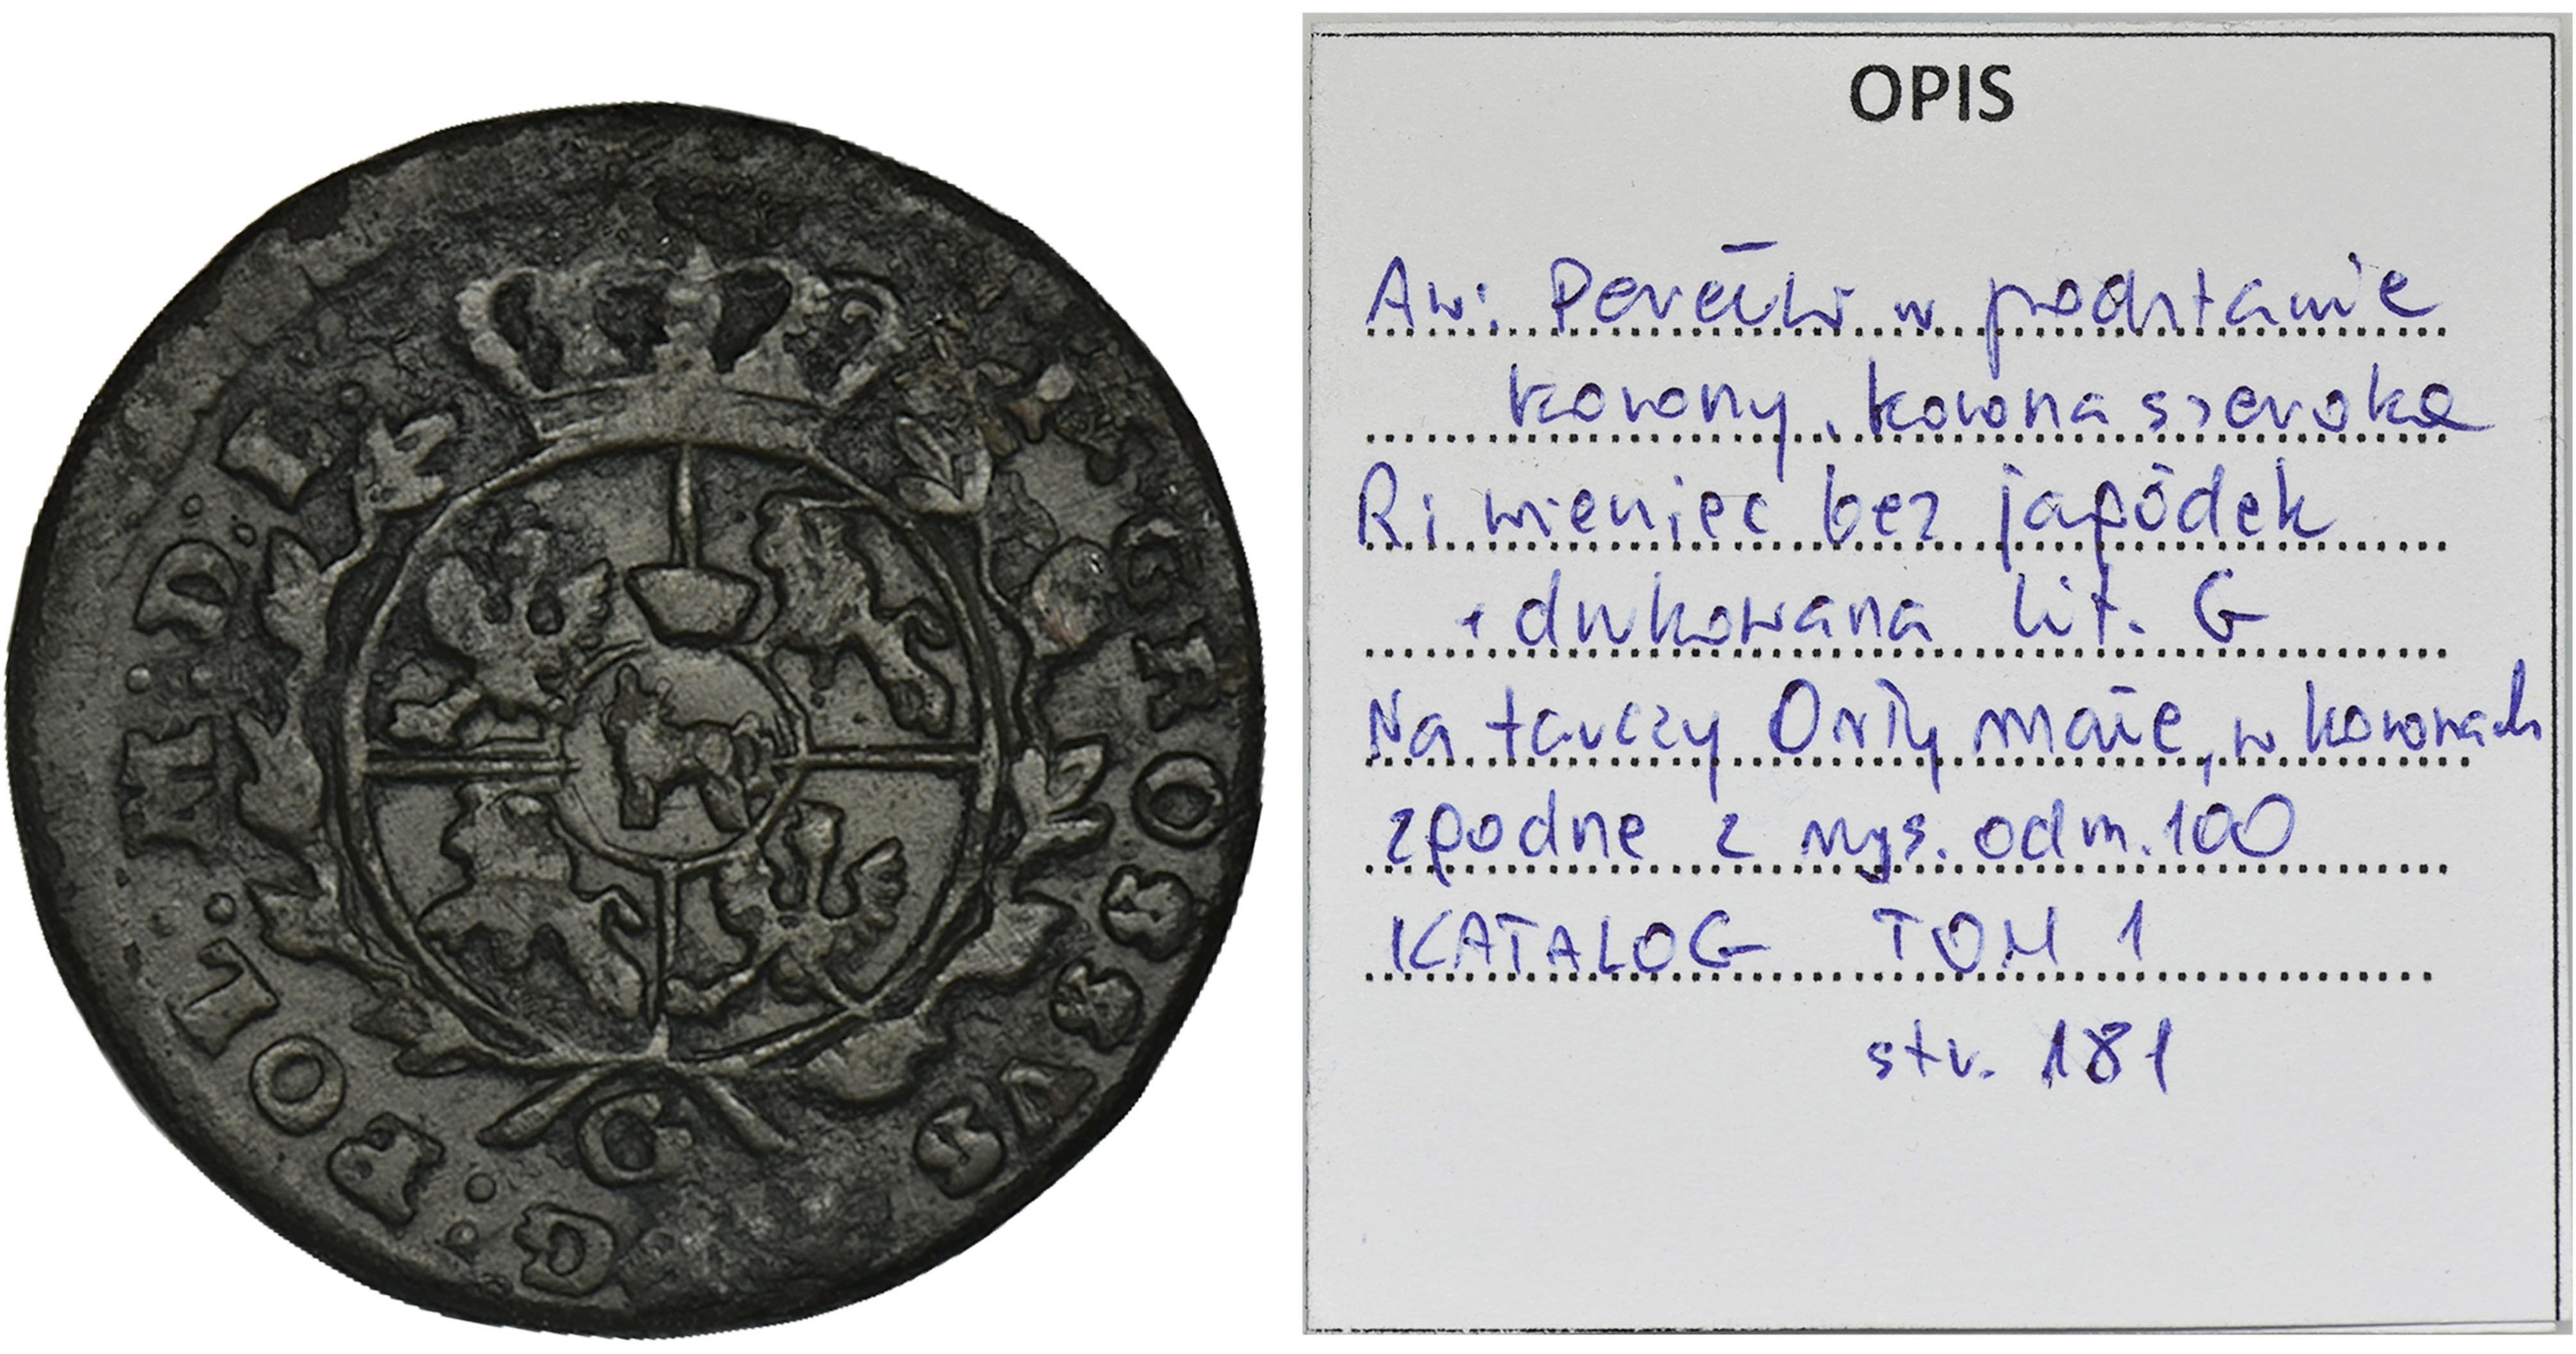 GROSSVS G: POL. M. D. L.
G
OPIS
Aw: Perełki w podstawie
korony, korona szeroka
R: wieniec bez jagódek
+ drukowana lit. G
Na tarczy Orły małe, w koronach
zgodne z rys. odm. 100
KATALOG TOM 1
str. 181